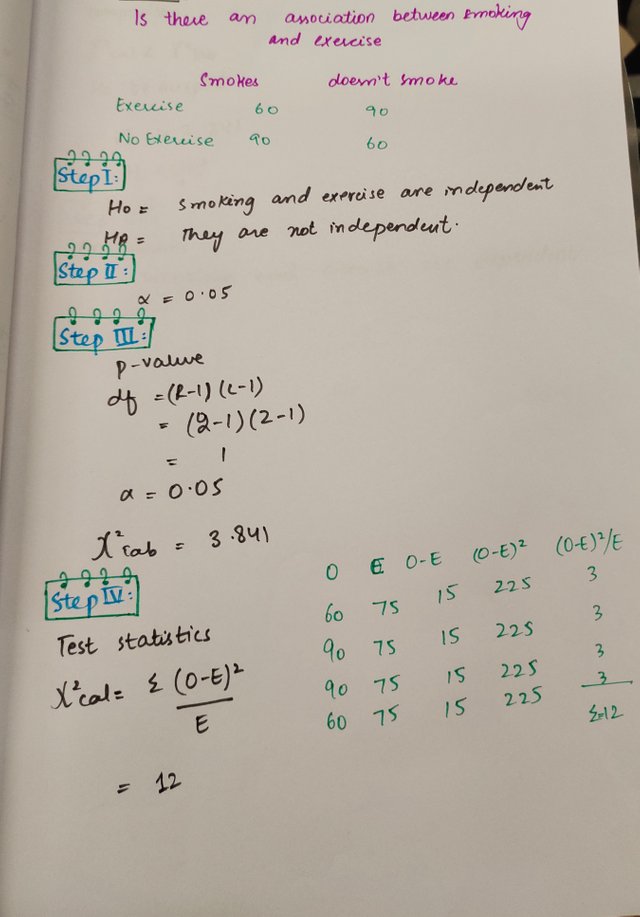 Is there an association between smoking
and exercise
Smokes doesn't smoke
Exercise 60 90
No Exercise 90 60
Step I:
H0 = smoking and exercise are independent
Ha = They are not independent.
Step II:
α = 0.05
Step III:
p-value
df = (R-1) (C-1)
= (2-1) (2-1)
= 1
α = 0.05
X²tab = 3.841
Step IV:
Test statistics
X²cal = Σ (O-E)²
E
= 12
O E O-E (O-E)² (O-E)²/E
60 75 15 225 3
90 75 15 225 3
90 75 15 225 3
60 75 15 225 3
Σ=12